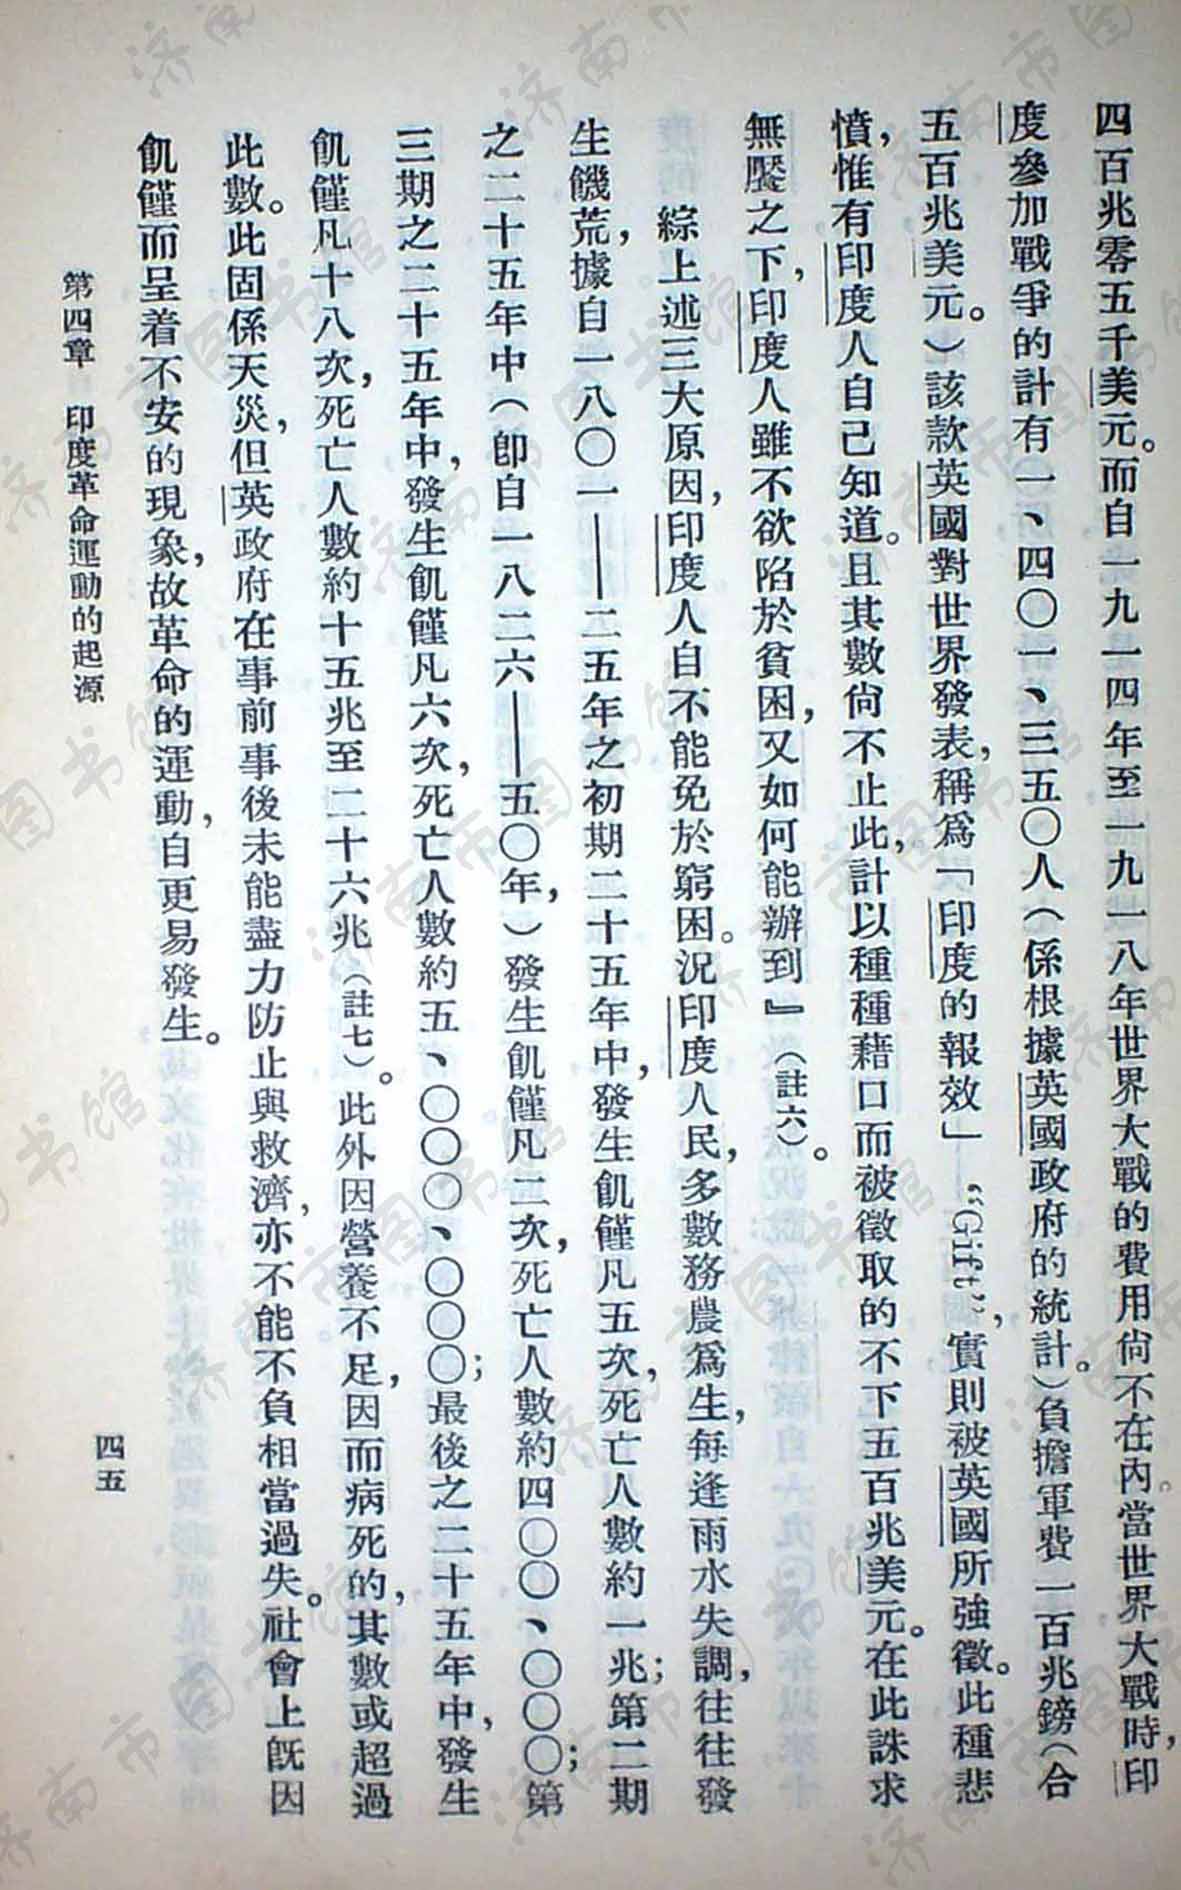 四百兆零五千美元。而自一九一四年至一九一八年世界大戰的費用尙不在內。當世界大戰時，印
度參加戰爭的計有一、四〇一、三五〇人（係根據英國政府的統計。）負擔軍費一百兆鎊（合
五百兆美元。）該款英國對世界發表，稱爲「印度的報效」“Gift”，實則被英國所強徵。此種悲
憤，惟有印度人自己知道。且其數尙不止此，計以種種藉口而被徵取的不下五百兆美元。在此誅求
無饜之下，印度人雖不欲陷於貧困，又如何能辦到』（註六）。
綜上述三大原因，印度人自不能免於窮困。況印度人民，多數務農爲生，每逢雨水失調，往往發
生饑荒，據自一八〇一——二五年之初期二十五年中，發生飢饉凡五次，死亡人數約一兆；第二期
之二十五年中（卽自一八二六——五〇年，）發生飢饉凡二次，死亡人數約四〇〇、〇〇〇；第
三期之二十五年中，發生飢饉凡六次，死亡人數約五、〇〇〇、〇〇〇；最後之二十五年中，發生
飢饉凡十八次，死亡人數約十五兆至二十六兆（註七）。此外因營養不足，因而病死的，其數或超過
此數。此固係天災，但英政府在事前事後未能盡力防止與救濟，亦不能不負相當過失。社會上旣因
飢饉而呈着不安的現象，故革命的運動，自更易發生。
第四章 印度革命運動的起源
四五
济南市图书馆